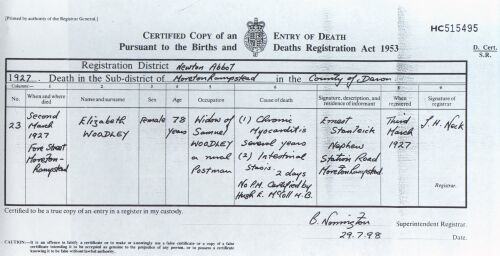 [Printed by authority of the Registrar General.]
HC515495
CERTIFIED COPY of an ENTRY OF DEATH
Pursuant to the Births and Deaths Registration Act 1953
D. Cert.
S.R.
Registration District Newton Abbot
1927. Death in the Sub-district of Moretonhampstead in the County of Devon
Columns:— 1 2 3 4 5 6 7 8 9
No. When and where died Name and surname Sex Age Occupation Cause of death Signature, description, and residence of informant When registered Signature of registrar
23 Second March 1927 Fore Street Moreton-hampstead
Elizabeth WOODLEY
Female
78 Years
Widow of Samuel WOODLEY a rural Postman
(1) Chronic Myocarditis several years
(2) Intestinal Stasis. 2 days
No P.M. Certified by Hugh K. McColl M.B.
Ernest Nephew Station Road Moretonhampstead
Third March 1927
J. H. Neck
Registrar.
Certified to be a true copy of an entry in a register in my custody.
Superintendent Registrar.
29.7.98 Date.
CAUTION:—It is an offence to falsify a certificate or to make or knowingly use a false certificate or a copy of a false
certificate intending it to be accepted as genuine to the prejudice of any person, or to possess a certificate
knowing it to be false without lawful authority.